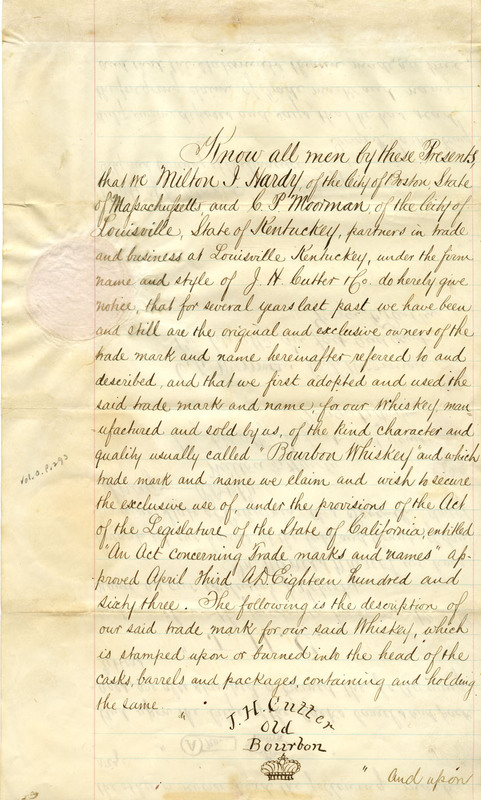 Know all men by these Presents
that we Milton J. Hardy, of the City of Boston, State
of Massachusetts and C. P. Moorman of the City of
Louisville, State of Kentucky, partners in trade
and business at Louisville Kentucky, under the firm
name and style of J. H. Cutter & Co. do hereby give
notice, that for several years last past we have been
and still are the original and exclusive owners of the
trade mark and name hereinafter referred to and
described, and that we first adopted and used the
said trade mark and name, for our Whiskey, man
ufactured and sold by us, of the kind character and
quality usually called "Bourbon Whiskey" and which
trade mark and name we claim and wish to secure
the exclusive use of, under the provisions of the Act
of the Legislature of the State of California, entitled
"An Act concerning Trade marks and names" ap-
proved April Third A.D. Eighteen hundred and
sixty three. The following is the description of
our said trade mark for our said Whiskey, which
is stamped upon or burned into the head of the
casks, barrels and packages, containing and holding
the same "
J. H. Cutter
Old
Bourbon
" and upon